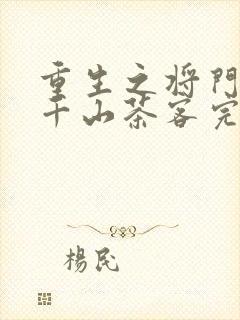 重生之将門
千山茶客完
楊民